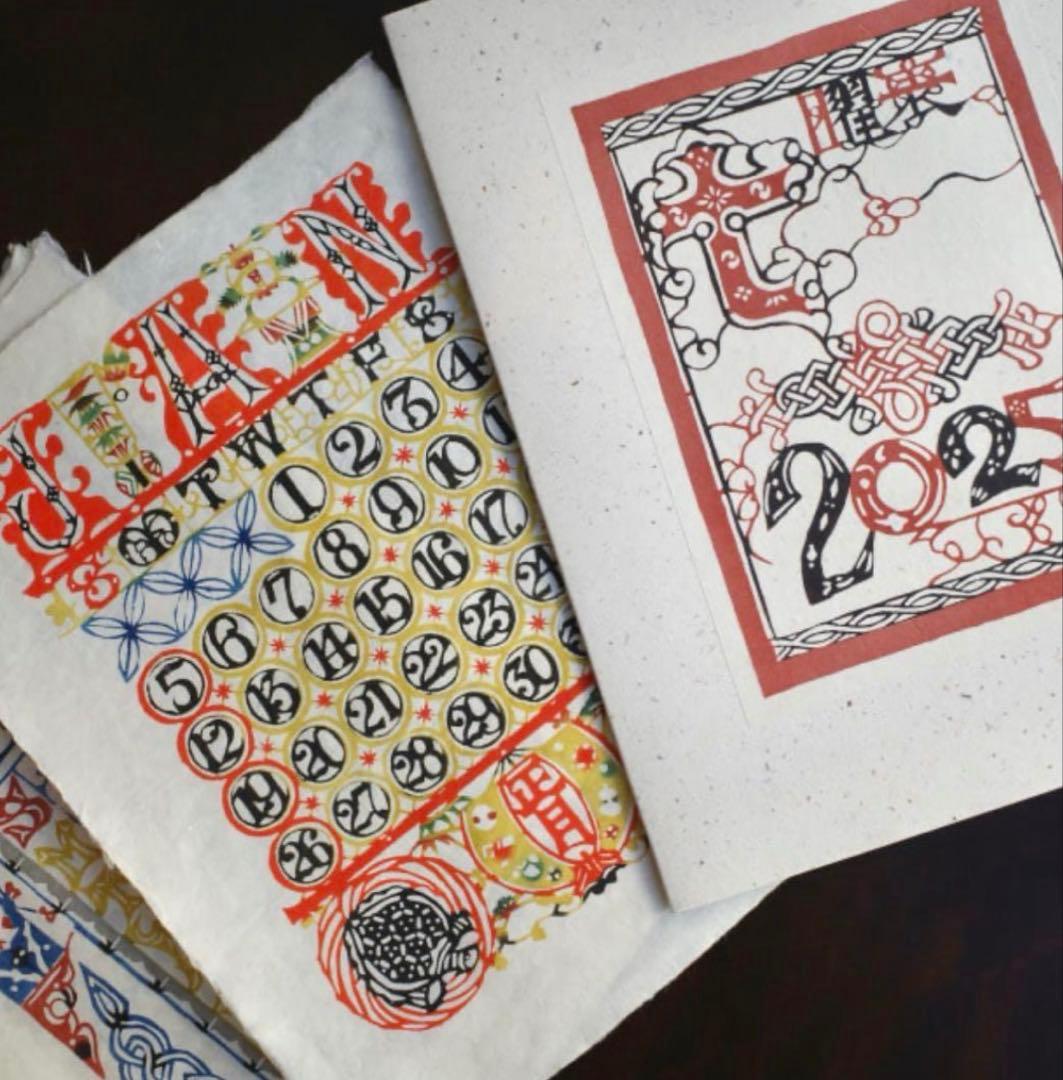 JAN
S M T W T F S
1 2 3 4
5 6 7 8 9 10
12 13 14 15 16 17
19 20 21 22 23 24
26 27 28 29 30
七曜表
202